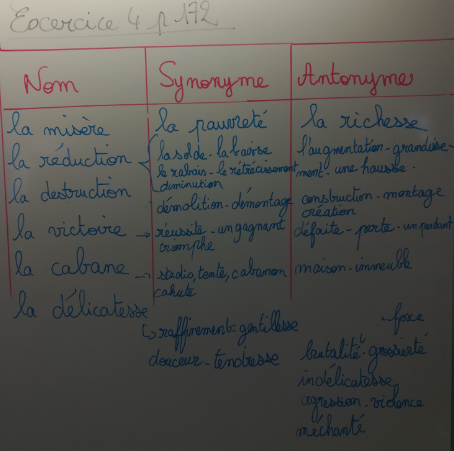 Excercice 4 p 172
Nom Synonyme Antonyme
la misère la pauvreté la richesse
la réduction la solde - la baisse l'augmentation - grandisse-
le rabais - le rétrécissement ment - une hausse
diminution
la destruction démolition - démontage construction - montage
création
la victoire → réussite - un gagnant défaite - perte - un perdant
triomphe
la cabane → stadio, tente, cabanon maison - immeuble
cahute
la délicatesse
↳ raffinement - gentillesse force
douceur - tendresse brutalité - grossierté
indélicatesse
agression - violence
méchanté